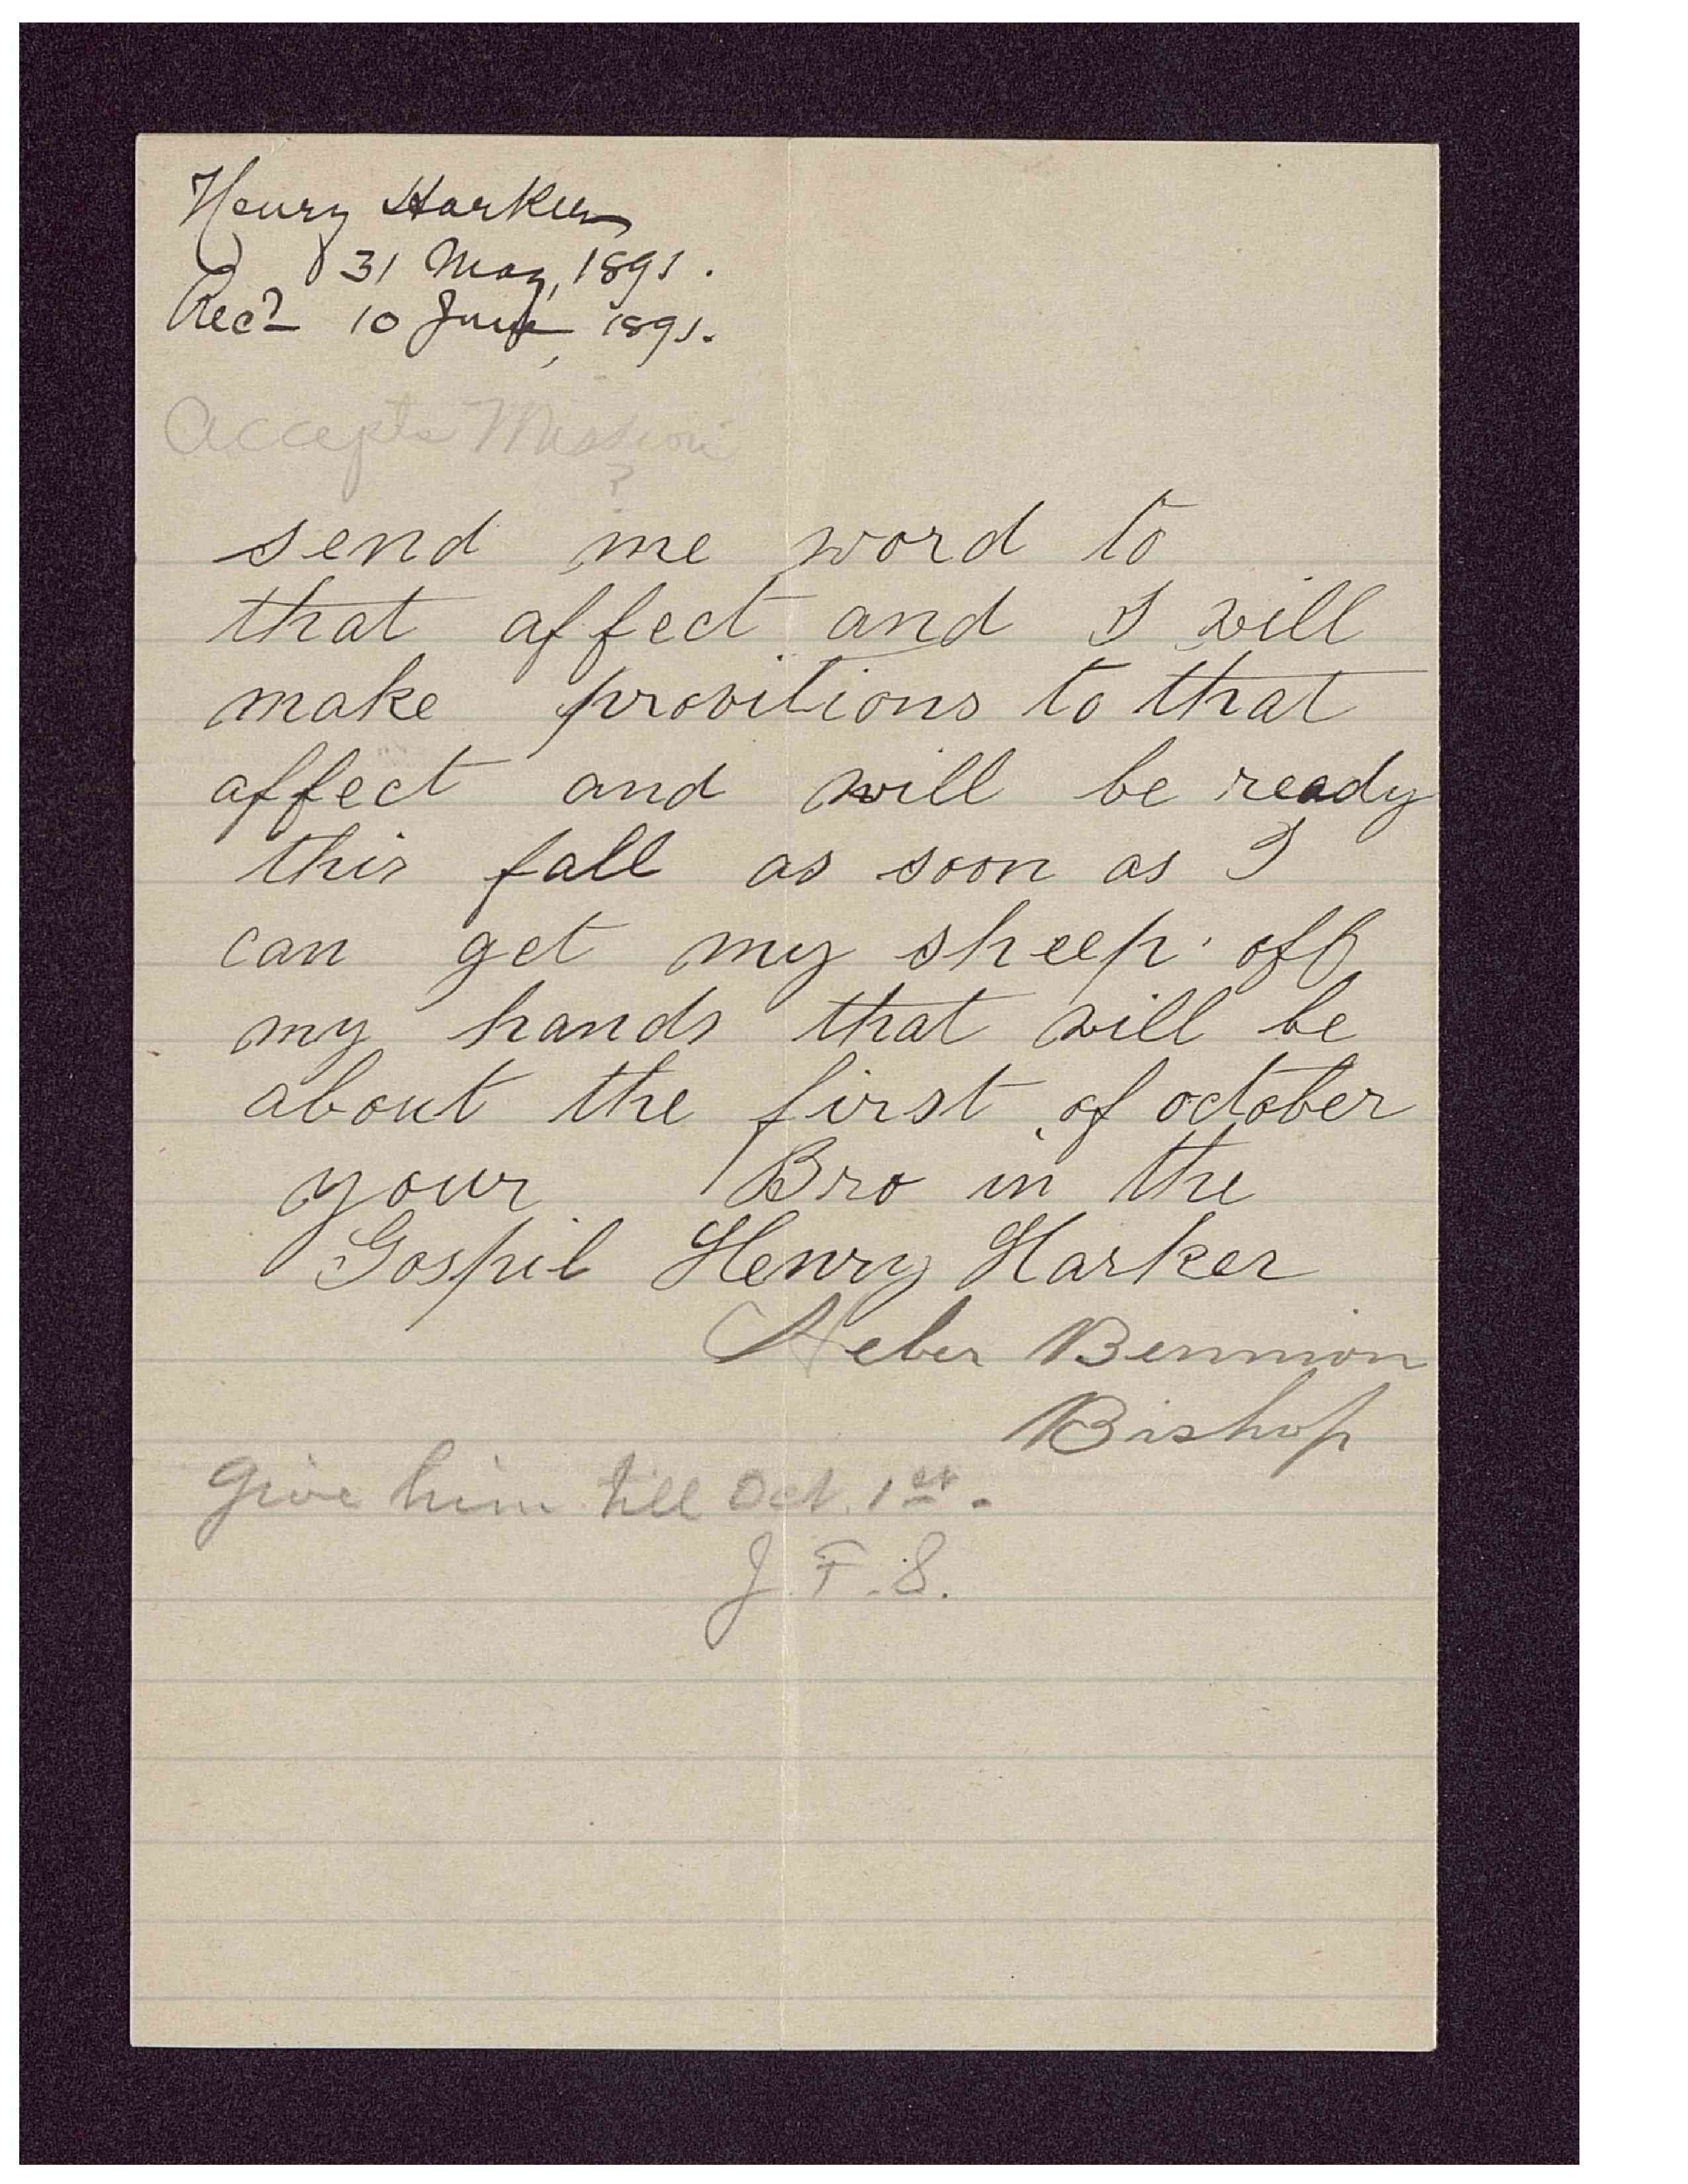 Henry Harker
31 May, 1891.
Recd 10 June, 1891.
Accepts Mission
?
send me word to
that affect and I will
make provitions to that
affect and will be ready
this fall as soon as I
can get my sheep off
my hands that will be
about the first of october
your Bro in the
Gospil Henry Harker
Heber Bennion
Bishop
Give him till Oct. 1st.
J. F. S.